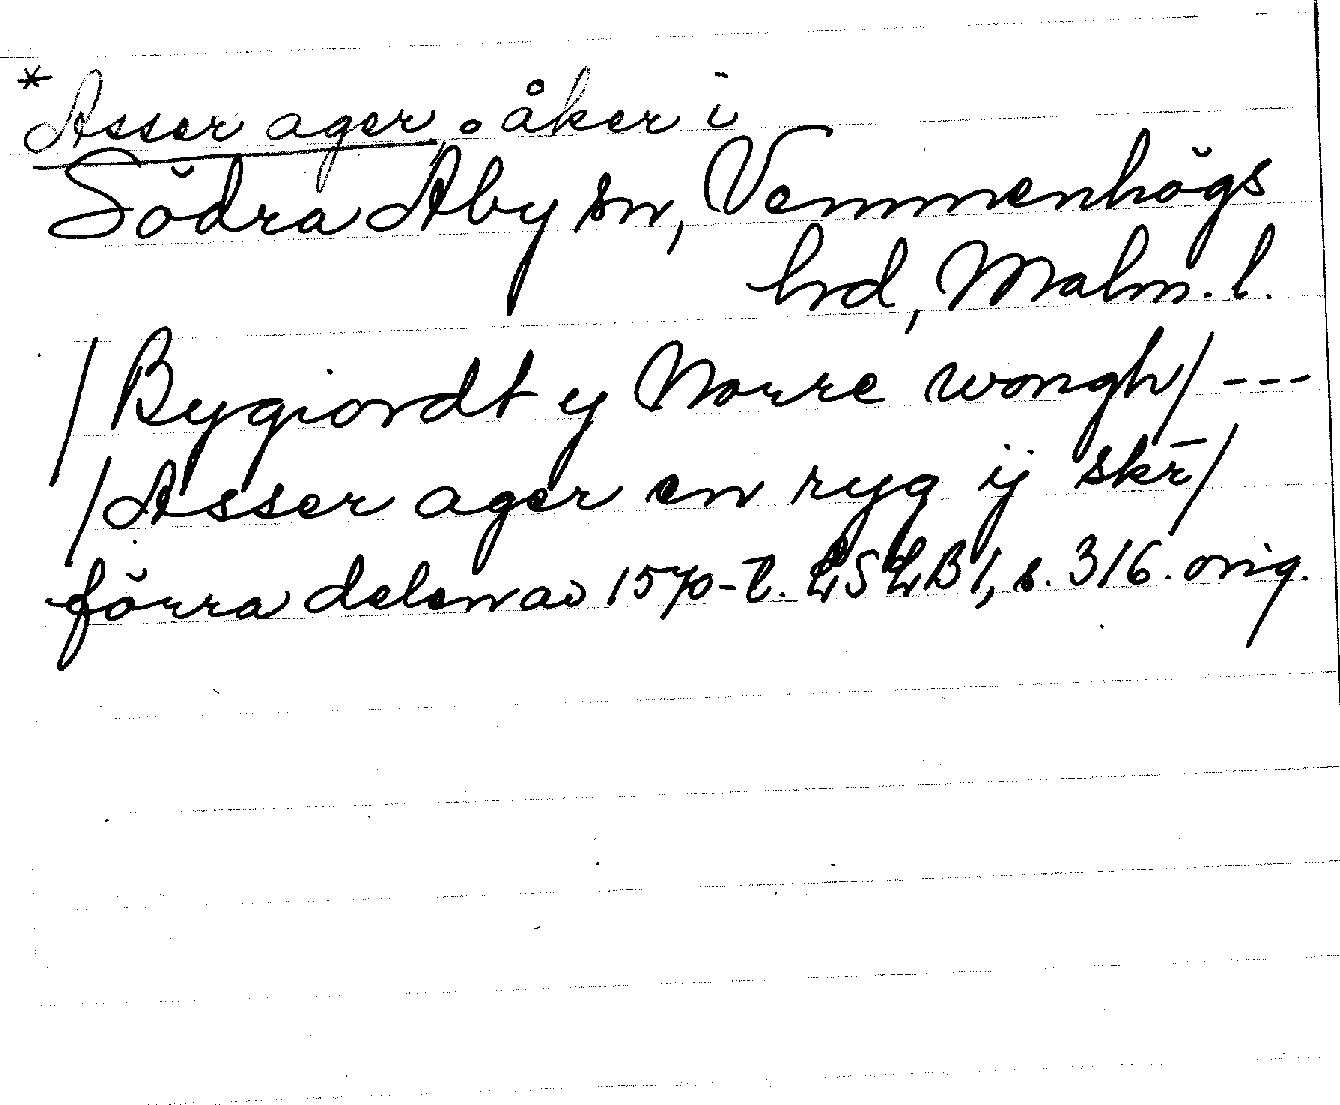 *Asser ager, åker i
Södra Åby sn, Vemmenhögs
hd, Malm. l.
/Bygiordt y Norre wongh/ ---
/Asser ager en ryg ij skr̄/
förra delen av 1570-t. LSLB 1, s. 316. orig.